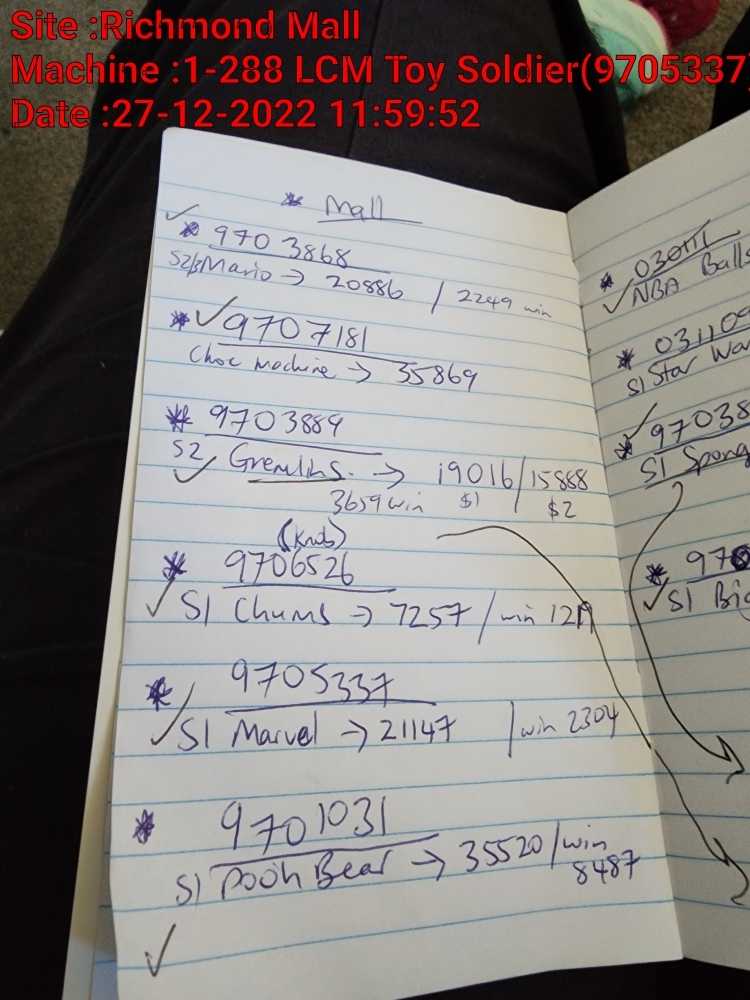 Site :Richmond Mall
Machine :1-288 LCM Toy Soldier(9705337)
Date :27-12-2022 11:59:52
* Mall
✓ * 9703868
S2/3 Mario → 20886 / 2249 win
* ✓ 9707181
Choc Machine → 35869
* 9703889
S2 ✓ Gremlins. → 19016/15888
3659 win $1 $2
(Knob)
* 9706526
✓ S1 Chums → 7257 / win
* 9705337
✓ S1 Marvel → 21147 / win 2304
* 9701031
S1 Pooh Bear → 35520 / win
8487
✓
* 
✓ NBA Balls
* 031109
S1 Star War
✓ * 97038
S1 Spong
* 970
✓ S1 Big